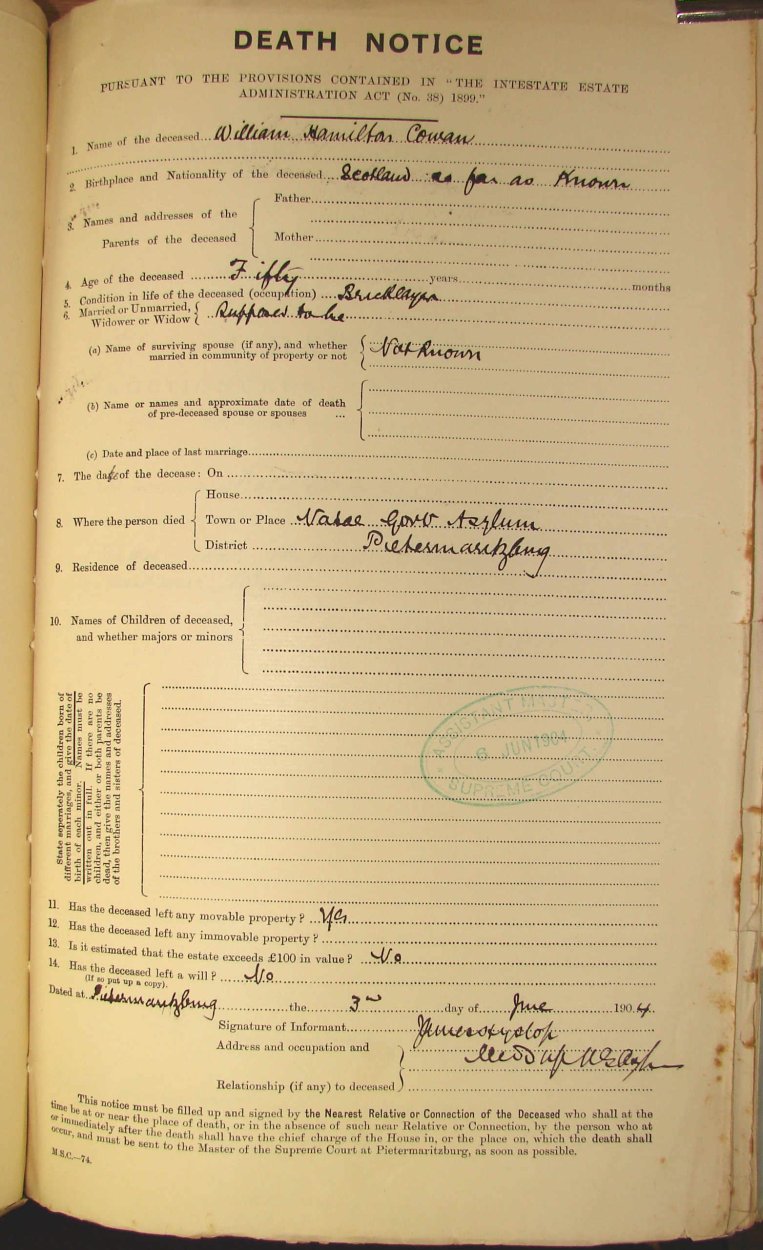 DEATH NOTICE
PURSUANT TO THE PROVISIONS CONTAINED IN "THE INTESTATE ESTATE
ADMINISTRATION ACT (No. 38) 1899."
1. Name of the deceased William Hamilton Cowan
2. Birthplace and Nationality of the deceased Scotland as far as Known
3. Names and addresses of the
Parents of the deceased
Father
Mother
4. Age of the deceased Fifty years months
5. Condition in life of the deceased (occupation) Bricklayer
6. Married or Unmarried,
Widower or Widow
Supposed to be
(a) Name of surviving spouse (if any), and whether
married in community of property or not
Not Known
(b) Name or names and approximate date of death
of pre-deceased spouse or spouses ...
(c) Date and place of last marriage
7. The date of the decease: On
8. Where the person died
House
Town or Place Natal Govt Asylum
District Pietermaritzburg
9. Residence of deceased
10. Names of Children of deceased,
and whether majors or minors
State seperately the children born of
different marriages, and give the date of
birth of each minor. Names must be
written out in full. If there are no
children, and either or both parents be
dead, then give the names and addresses
of the brothers and sisters of deceased.
ASSISTANT MASTER
6 JUN 1904
SUPREME COURT
11. Has the deceased left any movable property? Yes
12. Has the deceased left any immovable property?
13. Is it estimated that the estate exceeds £100 in value? No
14. Has the deceased left a will? No
(If so put up a copy).
Dated at Pietermaritzburg the 3rd day of June 1904.
Signature of Informant James Hyslop
Address and occupation and
Relationship (if any) to deceased
This notice must be filled up and signed by the Nearest Relative or Connection of the Deceased who shall at the
time be at or near the place of death, or in the absence of such near Relative or Connection, by the person who at
or immediately after the death shall have the chief charge of the House in, or the place on, which the death shall
occur, and must be sent to the Master of the Supreme Court at Pietermaritzburg, as soon as possible.
M.S.C.—74.